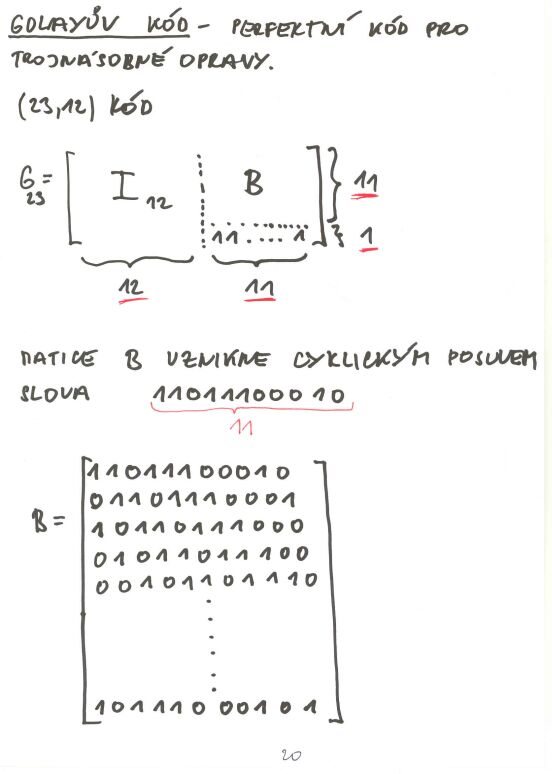 GOLAYŮV KÓD - PERFEKTNÍ KÓD PRO
TROJNÁSOBNÉ OPRAVY.
(23,12) KÓD
G₂₃ = [ I₁₂ B ] } 11
11.... 1 } 1
12 11
MATICE B VZNIKNE CYKLICKÝM POSUVEM
SLOVA 11011100010
11
11011100010
01101110001
B = 10110111000
01011011100
00101101110
10111000101
20